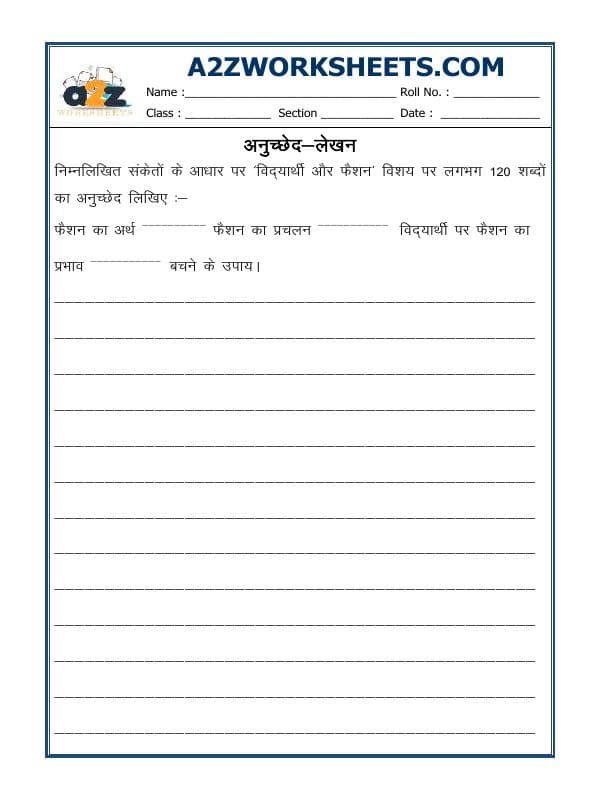 A2ZWORKSHEETS.COM
a2z
WORKSHEETS
Name :________________________________ Roll No. : _____________
Class : _____________ Section ___________ Date : _______________
अनुच्छेद–लेखन
निम्नलिखित संकेतों के आधार पर ‘विद्यार्थी और फैशन’ विशय पर लगभग 120 शब्दों
का अनुच्छेद लिखिए :–
फैशन का अर्थ __________ फैशन का प्रचलन ___________ विद्यार्थी पर फैशन का
प्रभाव ___________ बचने के उपाय।